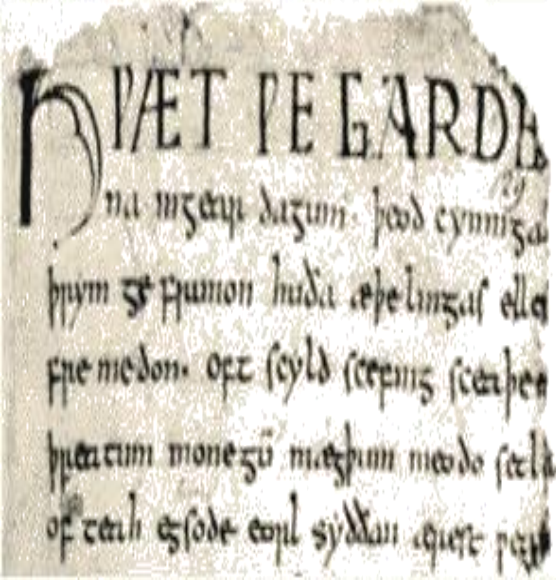 HǷÆT ǷE GARDE
na ingear dagum. þeod cyninga
þrym ge frunon huða æþelingas elle
fremedon. oft scyld scefing sceaþen
þreatum monegū mægþum meodo setla
of teah egsode eorl syððan ærest ƿear